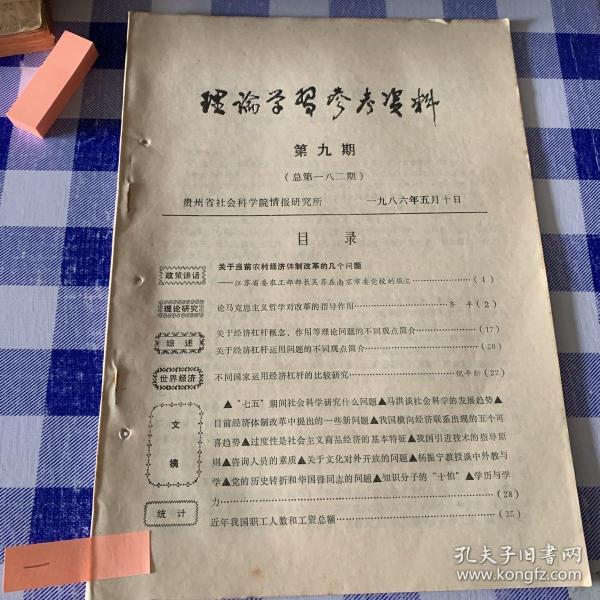 理论学习参考资料
第九期
(总第一八二期)
贵州省社会科学院情报研究所 一九八六年五月十日
目录
政策讲话 关于当前农村经济体制改革的几个问题
——江苏省委农工部部长吴 在南京市委党校的报告……(1)
理论研究 论马克思主义哲学对改革的指导作用……齐 平(2)
综述 关于经济杠杆概念、作用等理论问题的不同观点简介……(17)
关于经济杠杆运用问题的不同观点简介……(20)
世界经济 不同国家运用经济杠杆的比较研究……倪平松(22)
文摘 ▲“七五”期间社会科学研究什么问题▲马洪谈社会科学的发展趋势▲
目前经济体制改革中提出的一些新问题▲我国横向经济联系出现的五个可
喜趋势▲过度性是社会主义商品经济的基本特征▲我国引进技术的指导原
则▲咨询人员的素质▲关于文化对外开放的问题▲杨振宁教授谈中外教与
学▲党的历史转折和华国锋同志的问题▲知识分子的“十怕”▲学历与学
力……(28)
统计 近年我国职工人数和工资总额……(35)
一
孔夫子旧书网
www.kongfz.com